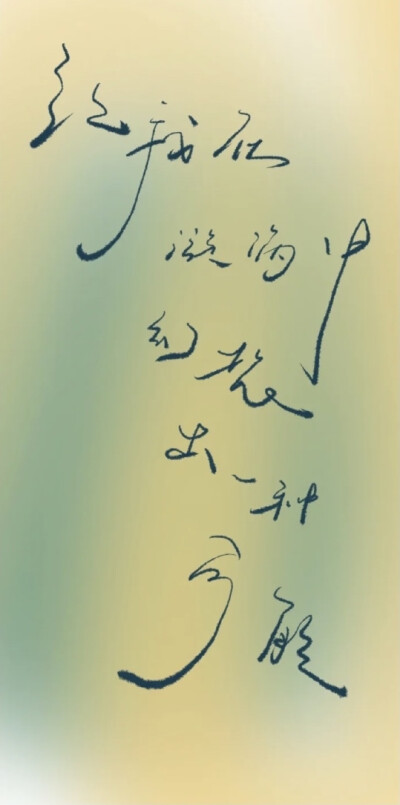 我在
漩涡中
幻
出一种
可能